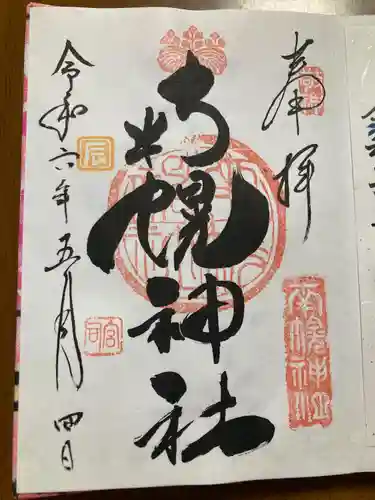 奉拝
南幌神社
南幌神社
令和六年五月四日
辰
宮司